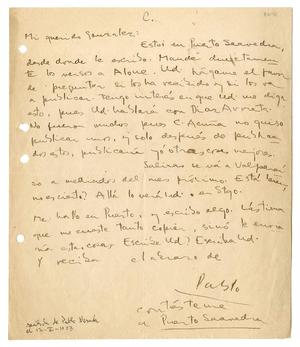 C.
Mi querido González:
Estoy en Puerto Saavedra,
desde donde le escribo. Mandé directamen-
te los versos a Alone. Ud. hágame el favor
de preguntar si los ha recibido y si los va
a publicar. Tengo interés en que Ud. me diga
esto, pues Ud. hablará con Díaz Arrieta.
No fueron unidos pues C. Acuña no quiso
publicar unos, y solo después de publica-
dos estos, publicaría yo otras cosas mejores.
Salinas se va a Valparaí-
so a mediados del mes próximo. Está bien,
no es cierto? Allá lo verá Ud. o en Stgo.
Me hallo en Puerto, y escribo algo. Lástima
que me cueste tanto copiar, sinó le envia-
ría estas cosas. Escribe Ud? Escriba Ud.
Y reciba el abrazo de
Pablo
contésteme
a Puerto Saavedra
de Pablo Neruda